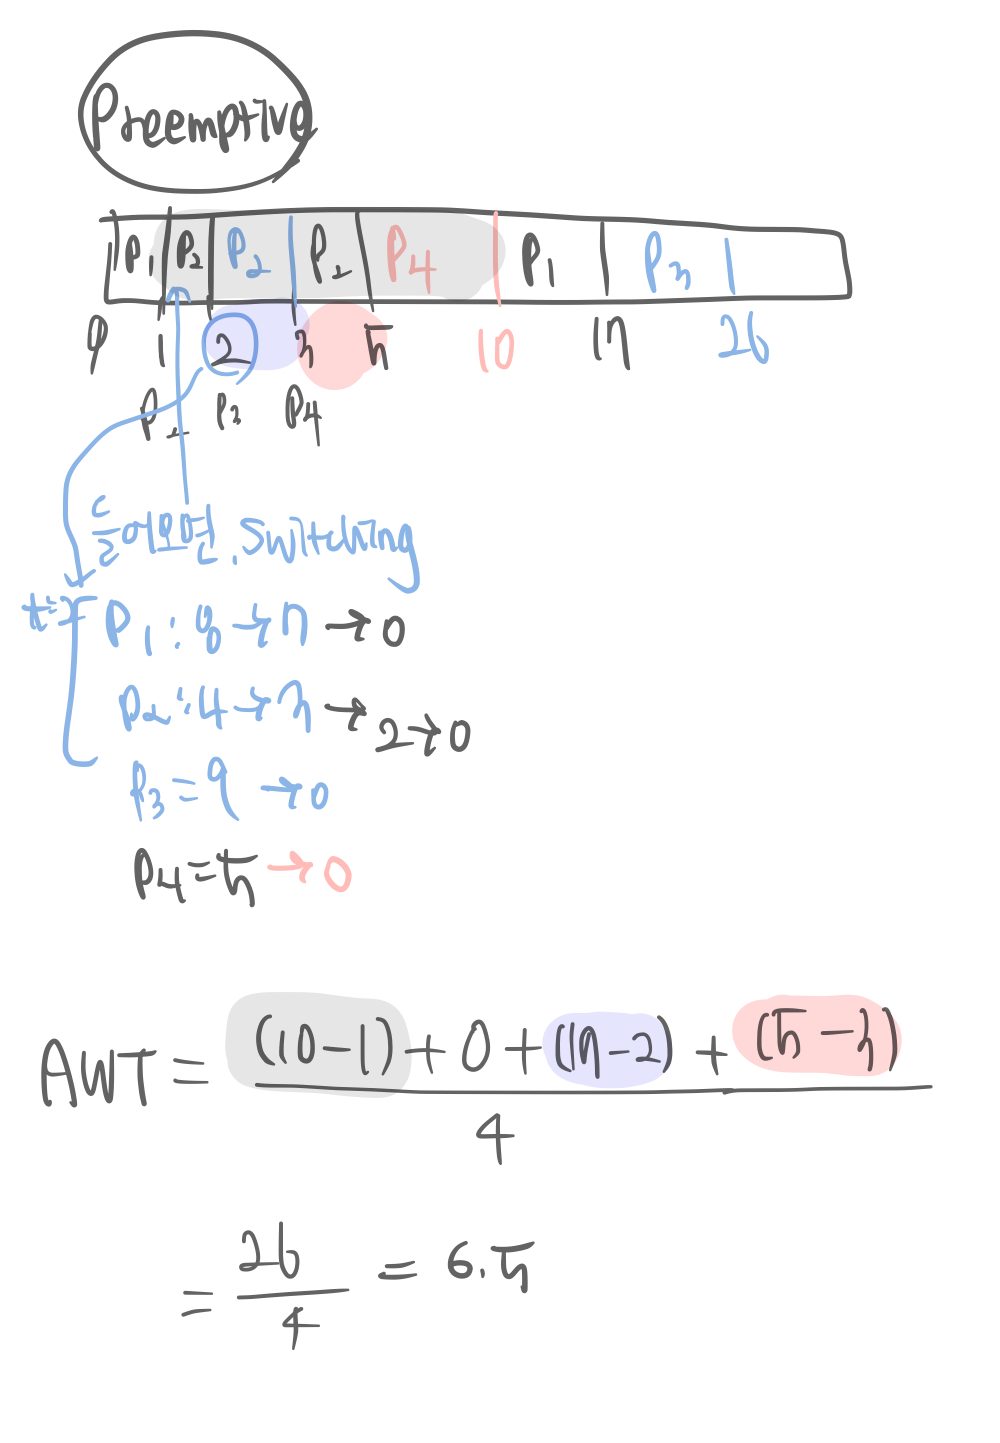 Preemptive
P1 P2 P2 P2 P4 P1 P3
0 1 2 3 5 10 17 26
P2 P3 P4
들어오면. switching
t=2 P1 : 8 → 7 → 0
P2 : 4 → 3 → 2 → 0
P3 = 9 → 0
P4 = 5 → 0
AWT = (10-1) + 0 + (17-2) + (5-3)
4
= 26
4 = 6.5